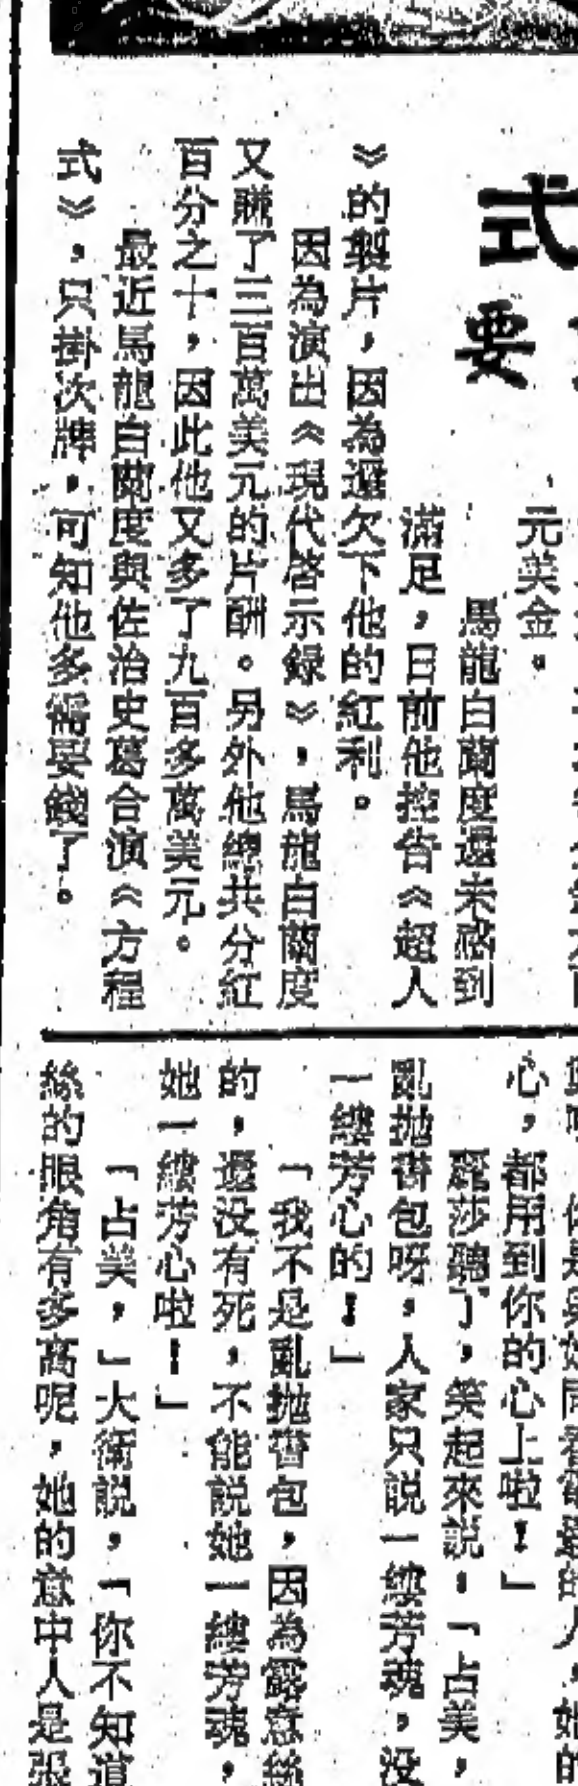 式
要
元美金。
馬龍白蘭度還未感到
滿足,日前他控告《超人
》的製片,因為還欠下他的紅利。
因為演出《現代啓示錄》,馬龍白蘭度
又賺了三百萬美元的片酬。另外他總共分紅
百分之十,因此他又多了九百多萬美元。
最近馬龍白蘭度與佐治史葛合演《方程
式》,只掛次牌,可知他多需要錢了。
心,都用到你的心上啦!」
麗莎聽了,笑起來說:「占美,
亂抛書包呀,人家只說一縷芳魂,沒
一縷芳心的!」
「我不是亂抛書包,因為露意絲
的,還沒有死,不能說她一縷芳魂,
她一縷芳心啦!」
「占美,」大衛說,「你不知道
絲的眼角有多高呢,她的意中人是張